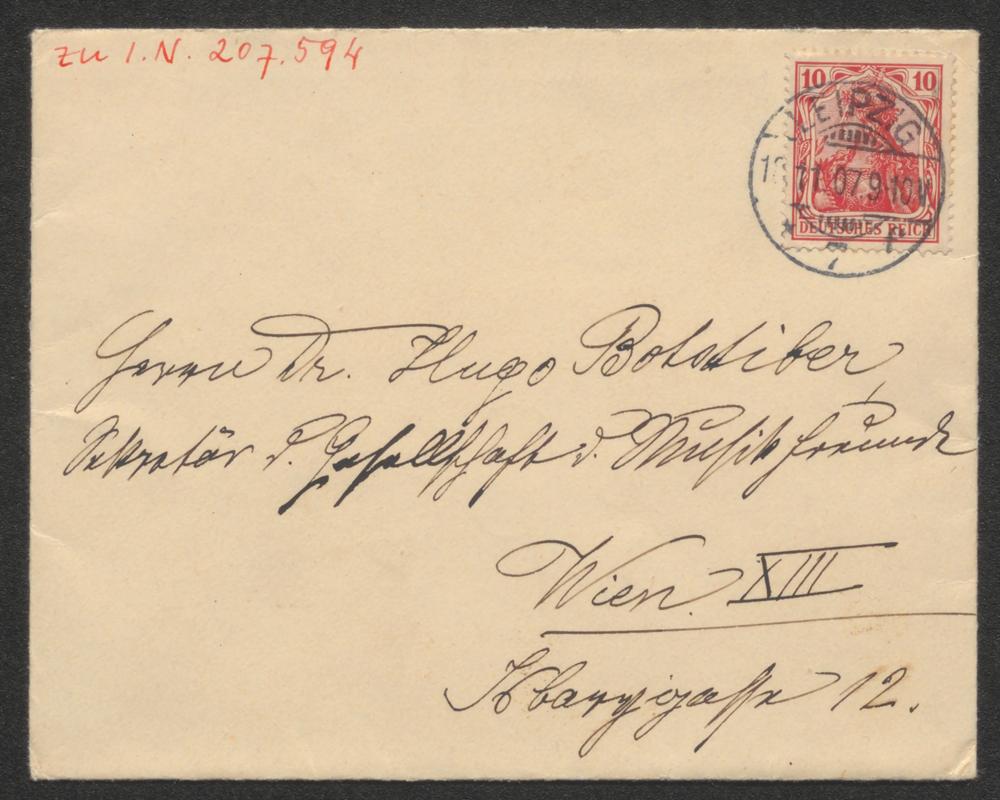 zu I.N. 207.594
10 10
LEIPZIG
11.07.9-10V
DEUTSCHES REICH
Herrn Dr. Hugo Botstiber
Sekretär d. Gesellschaft d. Musikfreunde
Wien XIII
12.